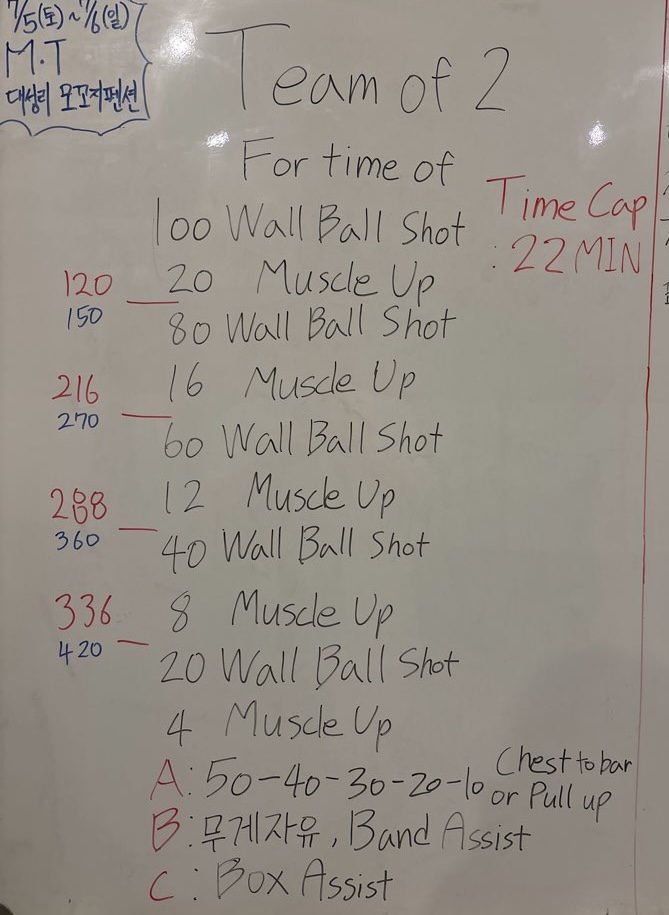 7/5(토)~7/6(일)
M.T
대성리 모꼬지펜션
Team of 2
For time of
Time Cap
: 22 MIN
100 Wall Ball Shot
20 Muscle Up
120
150
80 Wall Ball Shot
16 Muscle Up
216
270
60 Wall Ball Shot
12 Muscle Up
288
360
40 Wall Ball Shot
8 Muscle Up
336
420
20 Wall Ball Shot
4 Muscle Up
A: 50-40-30-20-10 Chest to bar
or Pull up
B: 무게자유, Band Assist
C: Box Assist